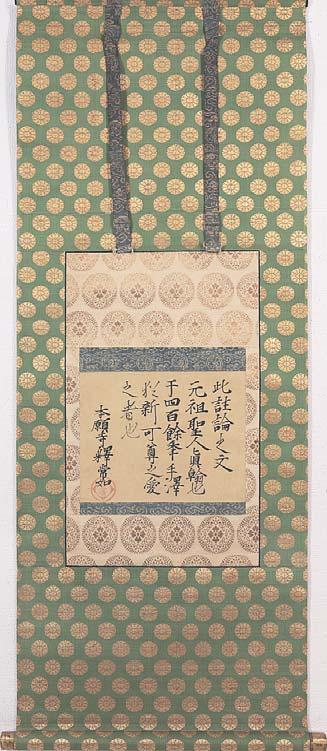 此註論之文
元祖聖人真翰也
于四百餘年手澤
猶新可尊可愛
之者也
本願寺釋常如